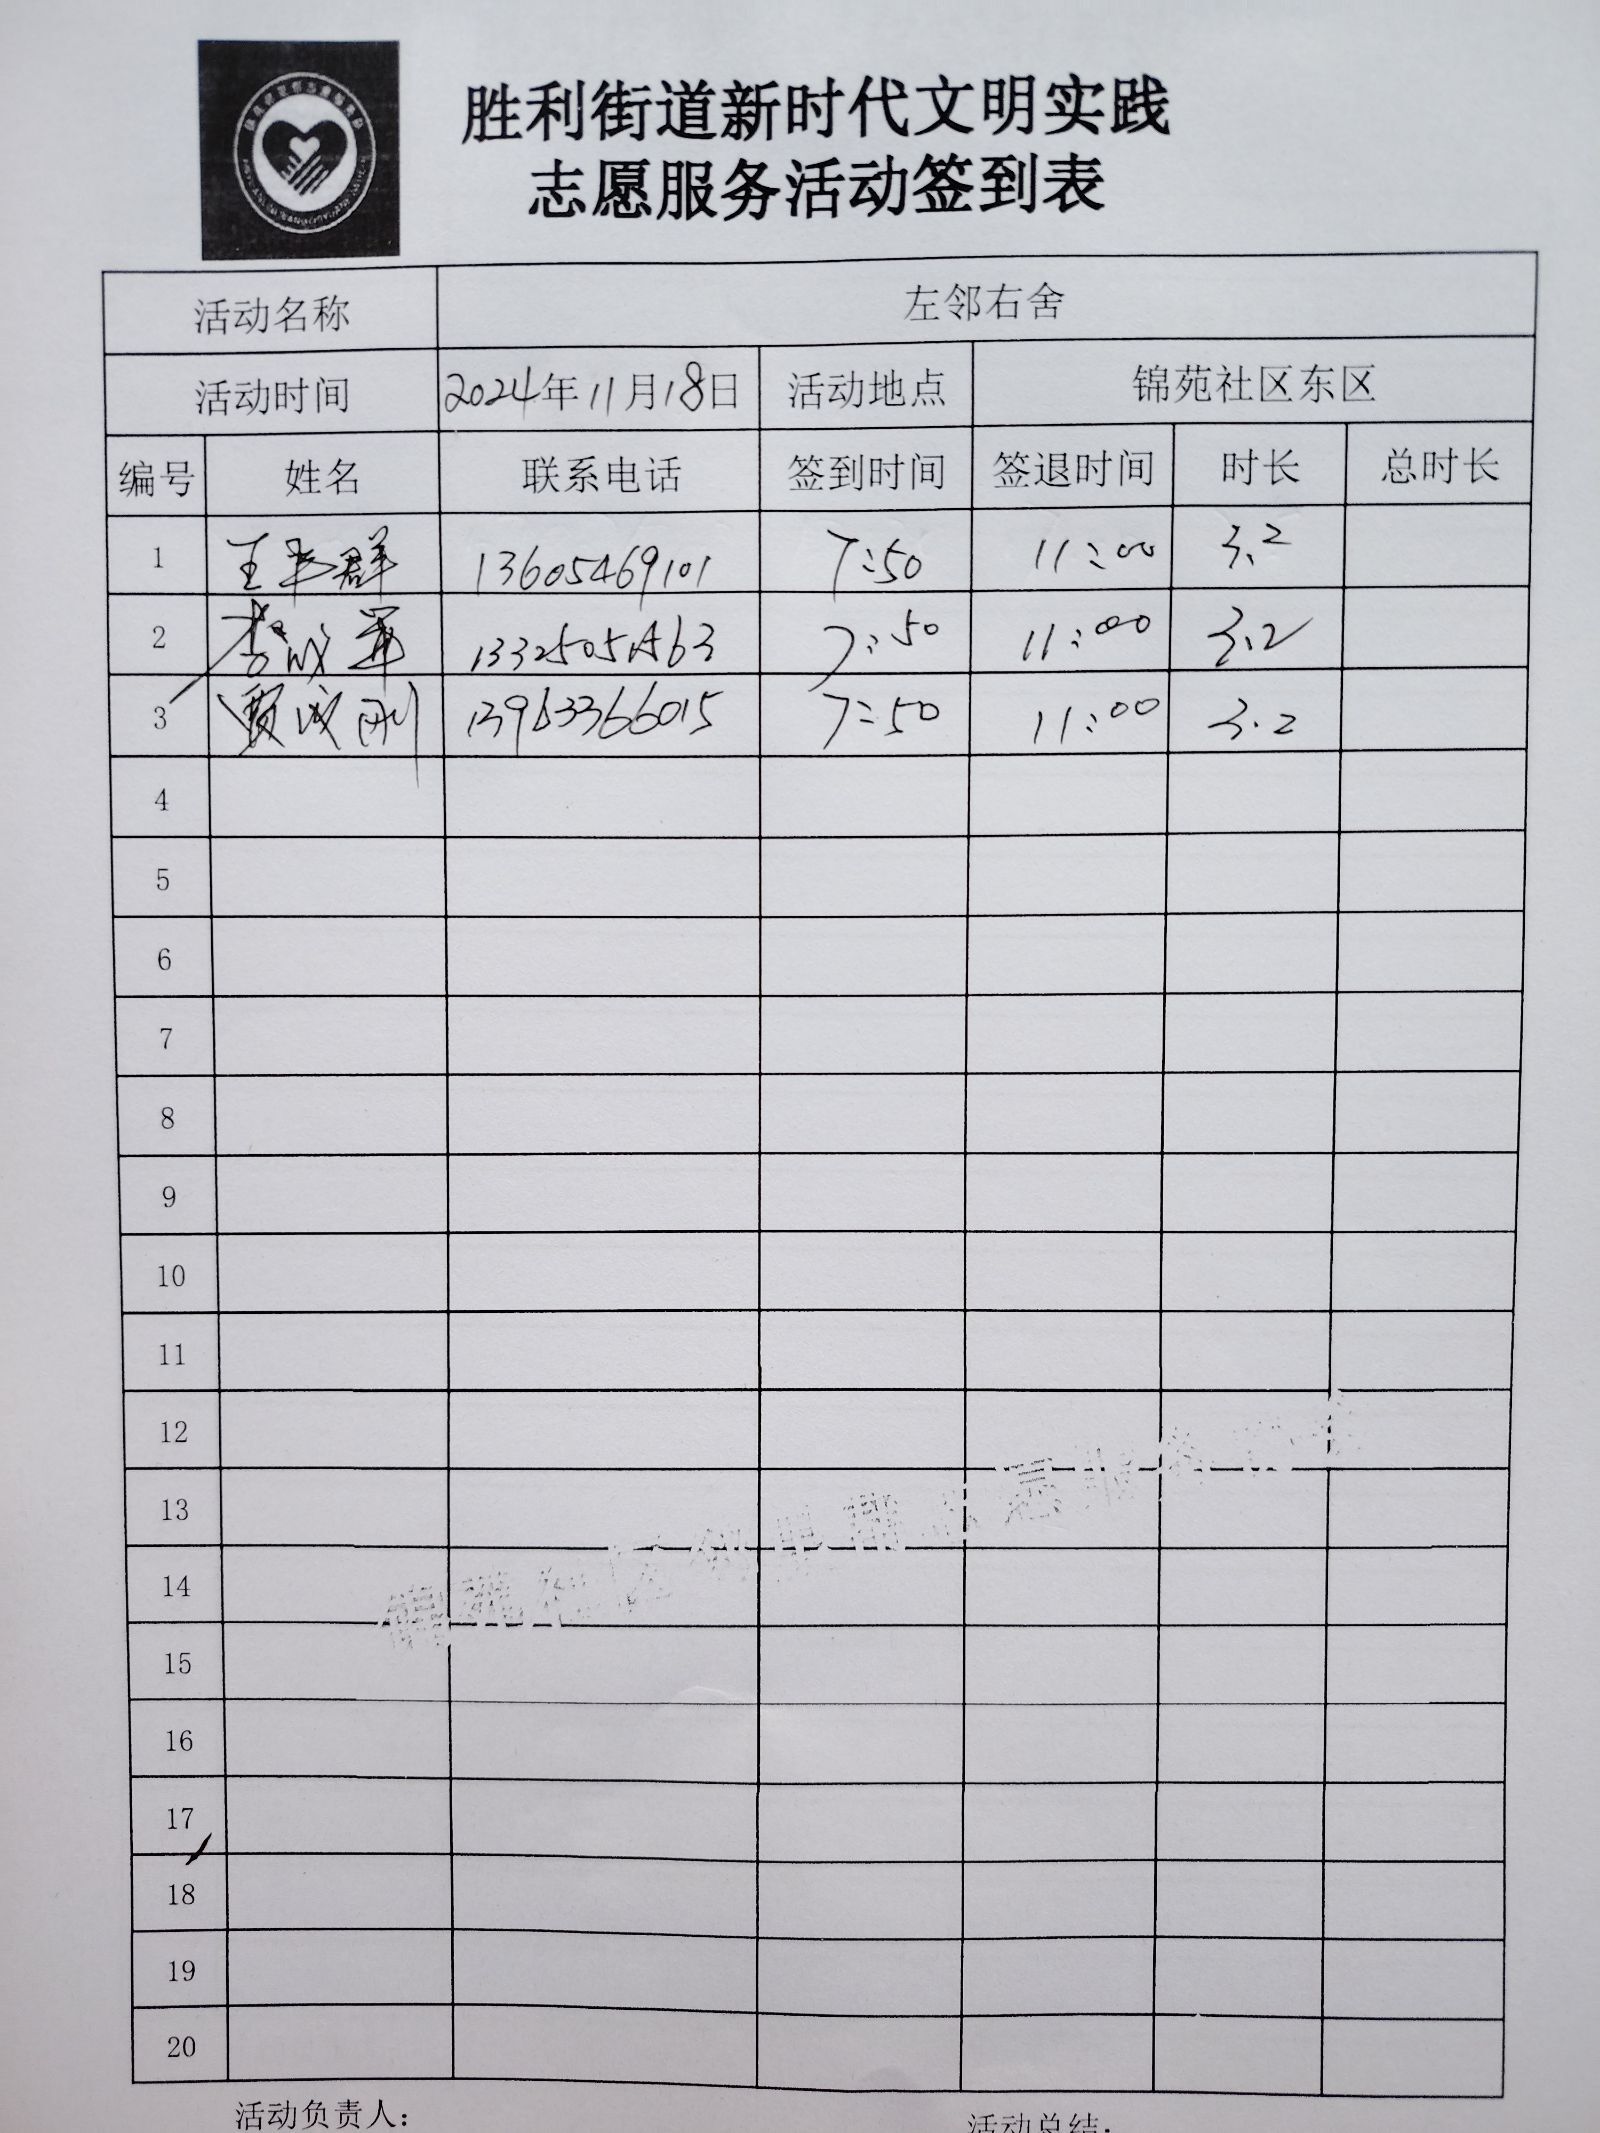 胜利街道新时代文明实践
志愿服务活动签到表
活动名称 左邻右舍
活动时间 2024年11月18日 活动地点 锦苑社区东区
编号 姓名 联系电话 签到时间 签退时间 时长 总时长
1 王 群 13605469101 7:50 11:00 3.2
2 李 军 7:50 11:00 3.2
3 贾成刚 13963366015 7:50 11:00 3.2
4
5
6
7
8
9
10
11
12
13
14
15
16
17
18
19
20
活动负责人: 活动总结: